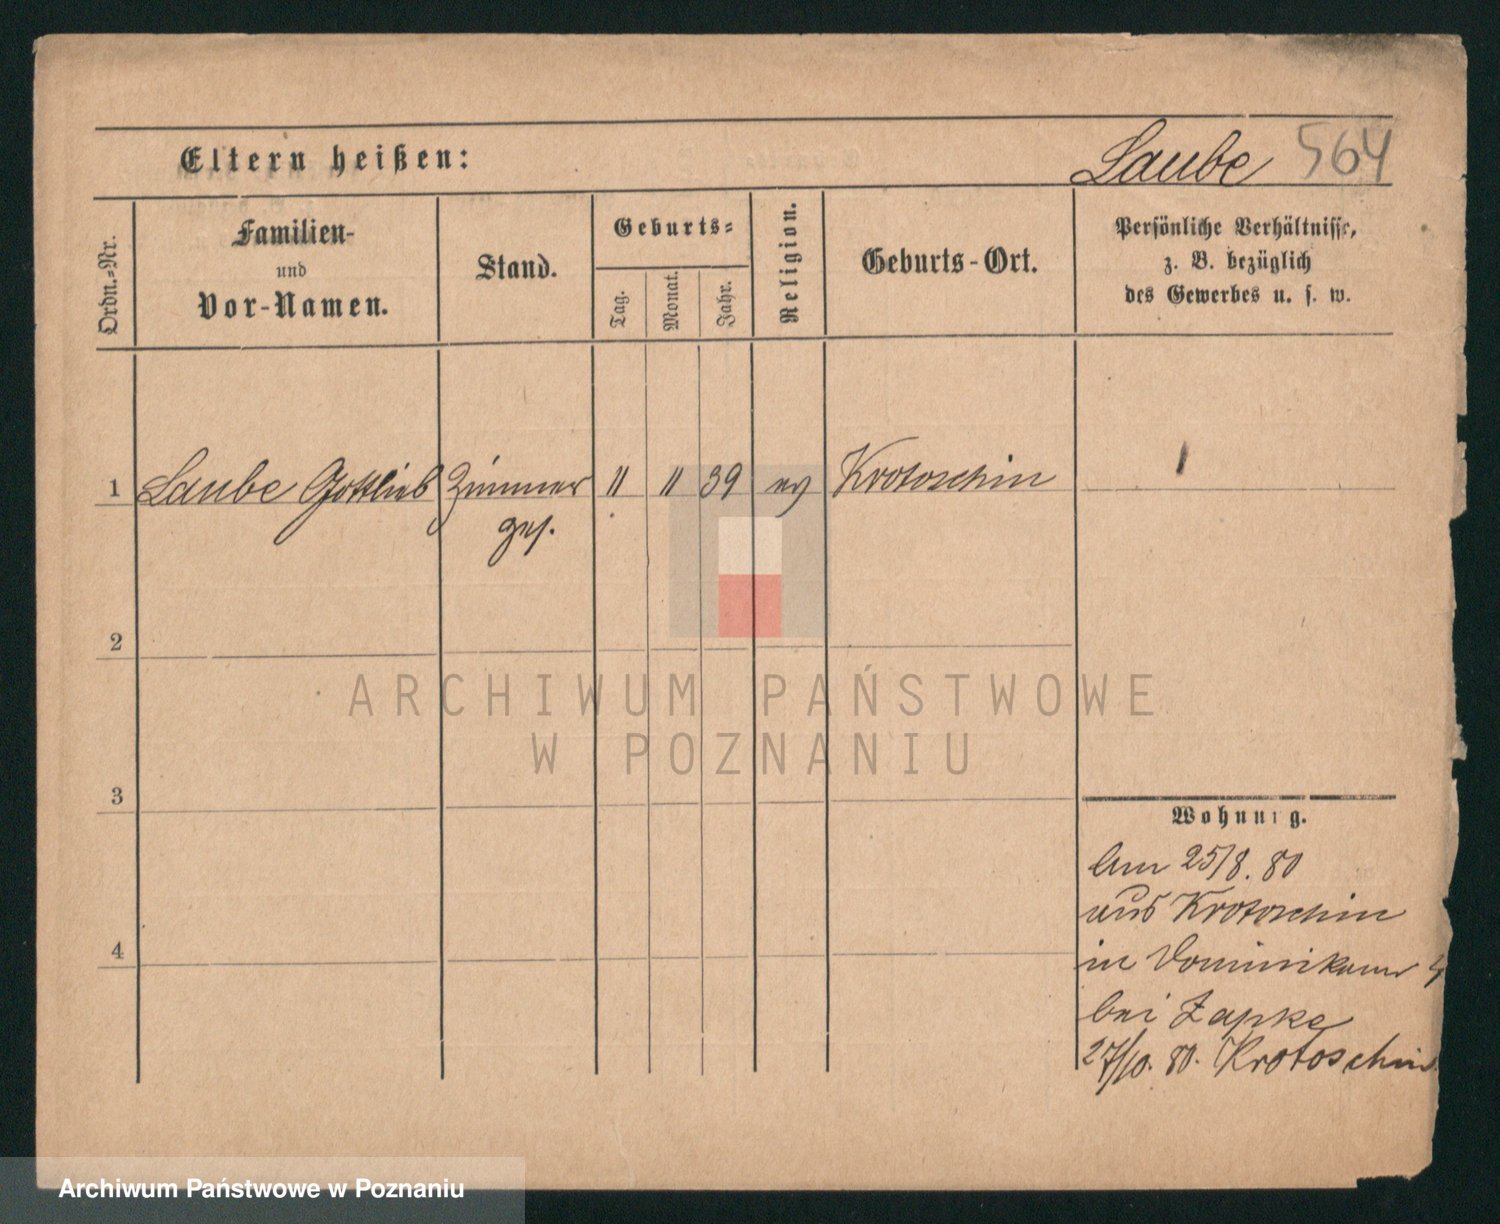 Eltern heißen:
Laube 564
Ordn.-Nr.
Familien-
und
Vor-Namen.
Stand.
Geburts-
Tag.
Monat.
Jahr.
Religion.
Geburts-Ort.
Persönliche Verhältnisse,
z. B. bezüglich
des Gewerbes u. s. w.
1 Laube Gottlieb Zimmer " " 39 ev Krotoschin
ges.
2
3
4
Wohnung.
Am 25/8. 80
aus Krotoschin
in Dominikaner 4
bei Zapke
27/10. 80. Krotoschin
ARCHIWUM PAŃSTWOWE
W POZNANIU
Archiwum Państwowe w Poznaniu